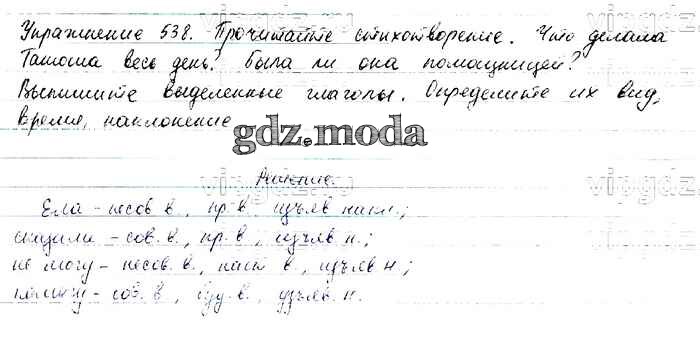 vipgdz.ru vipgdz
Упражнение 538. Прочитайте стихотворение. Что делала
Танюша весь день? Была ли она помощницей?
Выпишите выделенные глаголы. Определите их вид,
время, наклонение
gdz.moda
Решение.
vipgdz.ru vipgdz
Ела – несов. в., пр. в. изъяв накл.;
– сов. в., пр. в., изъяв н.;
не могу – несов. в., наст в., изъяв н.;
– сов. в., буд. в., изъяв. н.
vipgdz.ru vipgdz